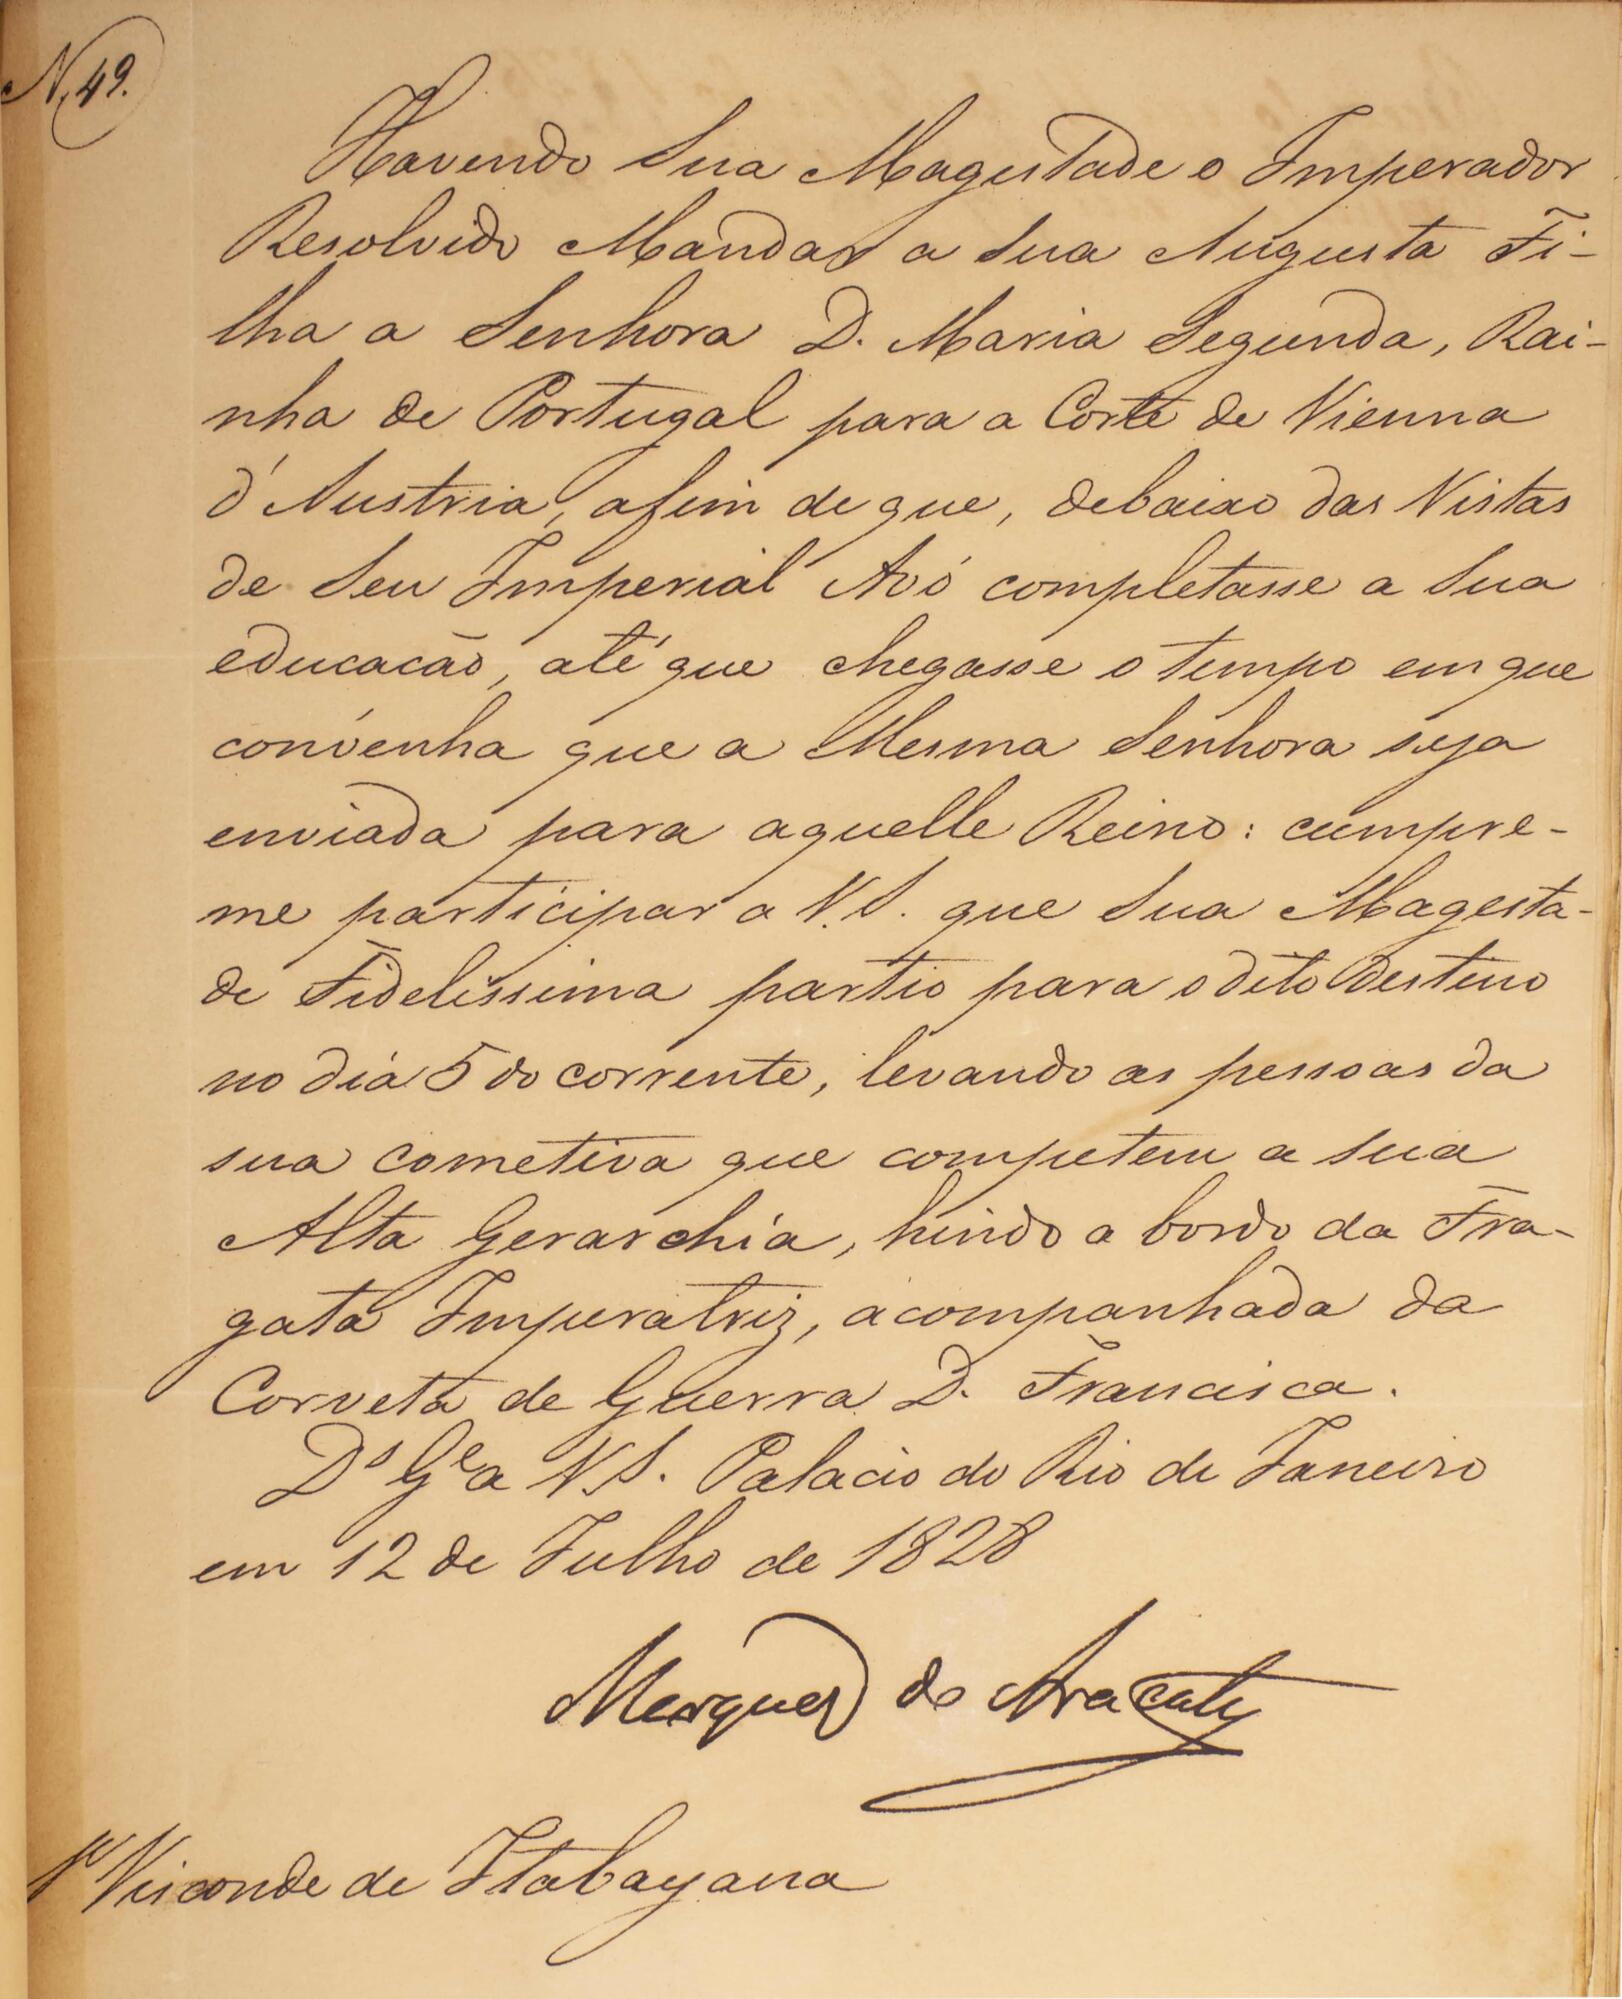 N. 49.
Havendo Sua Magestade o Imperador
Resolvido Mandar a Sua Augusta Fi-
lha a Senhora D. Maria Segunda, Rai-
nha de Portugal para a Corte de Vienna
d'Austria, afim de que, debaixo das Vistas
de Seu Imperial Avó completasse a Sua
educação, até que chegasse o tempo em que
convenha que a Mesma Senhora seja
enviada para aquelle Reino: cumpre-
me participar a V. S. que Sua Magesta-
de Fidelissima partio para o dito Destino
no dia 5 do corrente, levando as pessoas da
sua cometiva que competem a sua
Alta Gerarchia, hindo a bordo da Fra-
gata Imperatriz, acompanhada da
Corveta de Guerra D. Francisca.
Ds Ge a V. S. Palacio do Rio de Janeiro
em 12 de Julho de 1828
Marquez do Aracaty
Sr Visconde de Itabayana